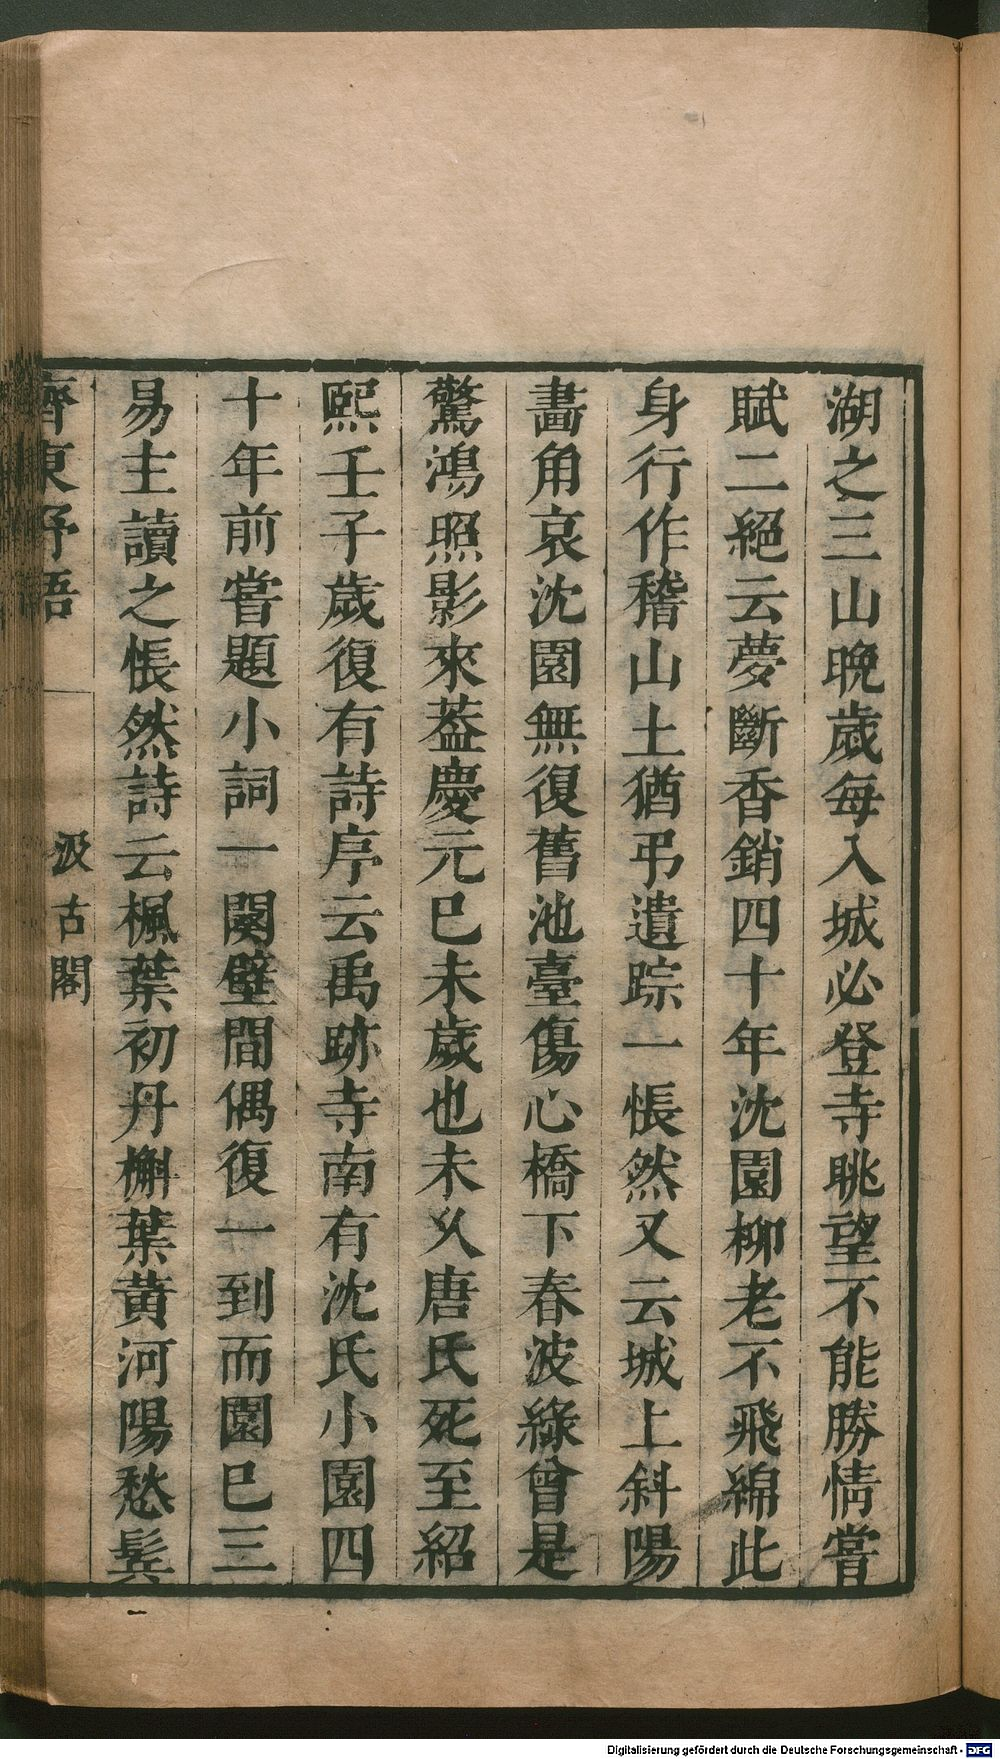 湖之三山晚歲每入城必登寺眺望不能勝情嘗
賦二絕云夢斷香銷四十年沈園柳老不飛綿此
身行作稽山土猶弔遺踪一悵然又云城上斜陽
畫角哀沈園無復舊池臺傷心橋下春波綠曾是
驚鴻照影來葢慶元巳未歲也未乆唐氏死至紹
熙壬子歲復有詩序云禹跡寺南有沈氏小園四
十年前嘗題小詞一闋壁間偶復一到而園巳三
易主讀之悵然詩云楓葉初丹槲葉黃河陽愁鬂
齊東野語 一 汲古閣
Digitalisierung gefördert durch die Deutsche Forschungsgemeinschaft - DFG